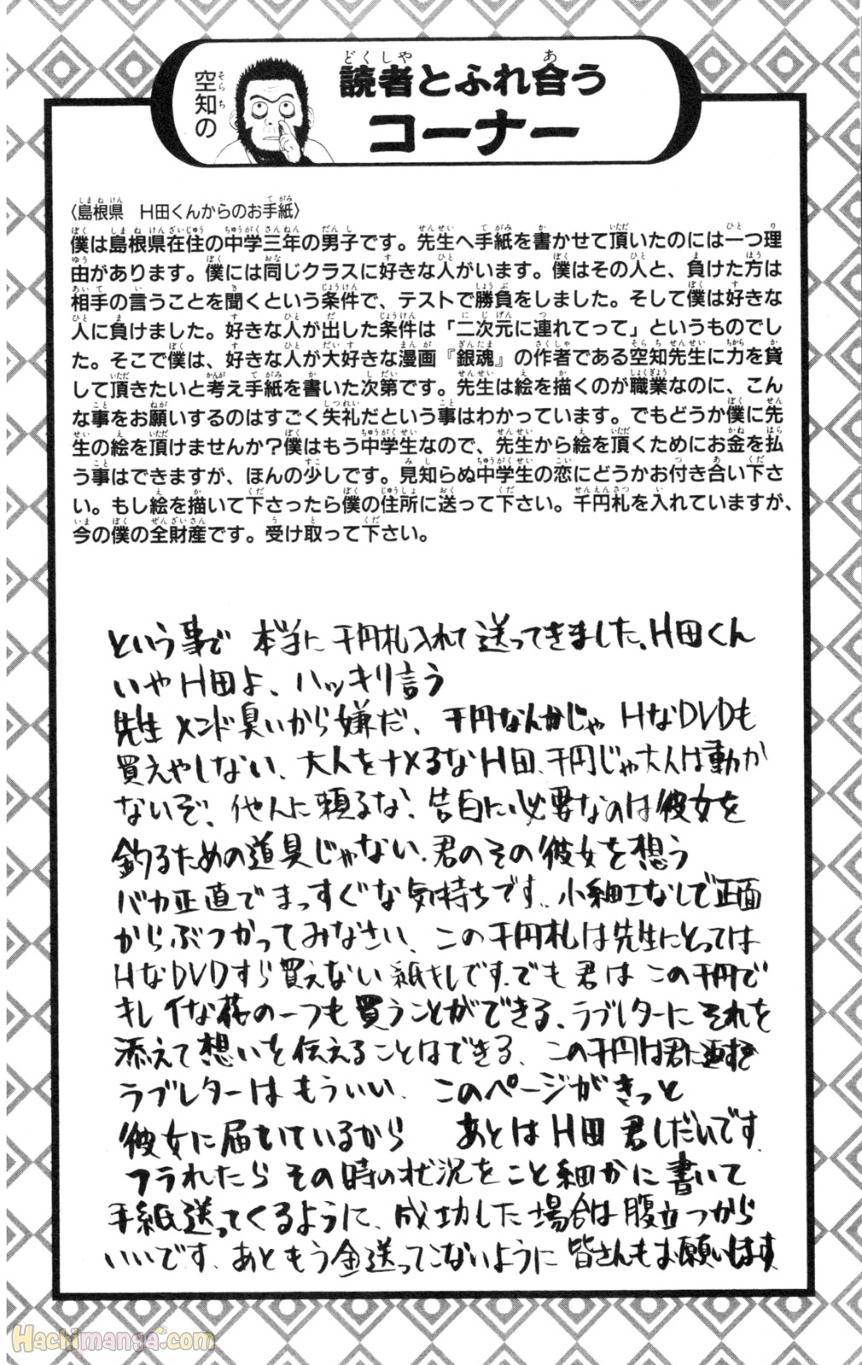 空知の
読者とふれ合う
コーナー
〈島根県　H田くんからのお手紙〉
僕は島根県在住の中学三年の男子です。先生へ手紙を書かせて頂いたのには一つ理
由があります。僕には同じクラスに好きな人がいます。僕はその人と、負けた方は
相手の言うことを聞くという条件で、テストで勝負をしました。そして僕は好きな
人に負けました。好きな人が出した条件は「二次元に連れてって」というものでし
た。そこで僕は、好きな人が大好きな漫画『銀魂』の作者である空知先生に力を貸
して頂きたいと考え手紙を書いた次第です。先生は絵を描くのが職業なのに、こん
な事をお願いするのはすごく失礼だという事はわかっています。でもどうか僕に先
生の絵を頂けませんか？僕はもう中学生なので、先生から絵を頂くためにお金を払
う事はできますが、ほんの少しです。見知らぬ中学生の恋にどうかお付き合い下さ
い。もし絵を描いて下さったら僕の住所に送って下さい。千円札を入れていますが、
今の僕の全財産です。受け取って下さい。
という事で 本当に千円札入れて送ってきました。H田くん
いやH田よ、ハッキリ言う
先生メンド臭いから嫌だ、千円なんかじゃHなDVDも
買えやしない、大人をナメるなH田、千円じゃ大人は動か
ないぞ、他人に頼るな、告白に必要なのは彼女を
釣るための道具じゃない、君のその彼女を想う
バカ正直でまっすぐな気持ちです、小細工なしで正面
からぶつかってみなさい、この千円札は先生にとっては
HなDVDすら買えない紙キレです、でも君はこの千円で
キレイな花の一つも買うことができる、ラブレターにそれを
添えて想いを伝えることはできる、この千円は君に返す
ラブレターはもういい、このページがきっと
彼女に届いているから あとはH田君しだいです、
フラれたらその時の状況をこと細かに書いて
手紙送ってくるように、成功した場合は腹立つから
いいです、あともう金送ってこないように皆さんもお願いします
Hachimanga.com